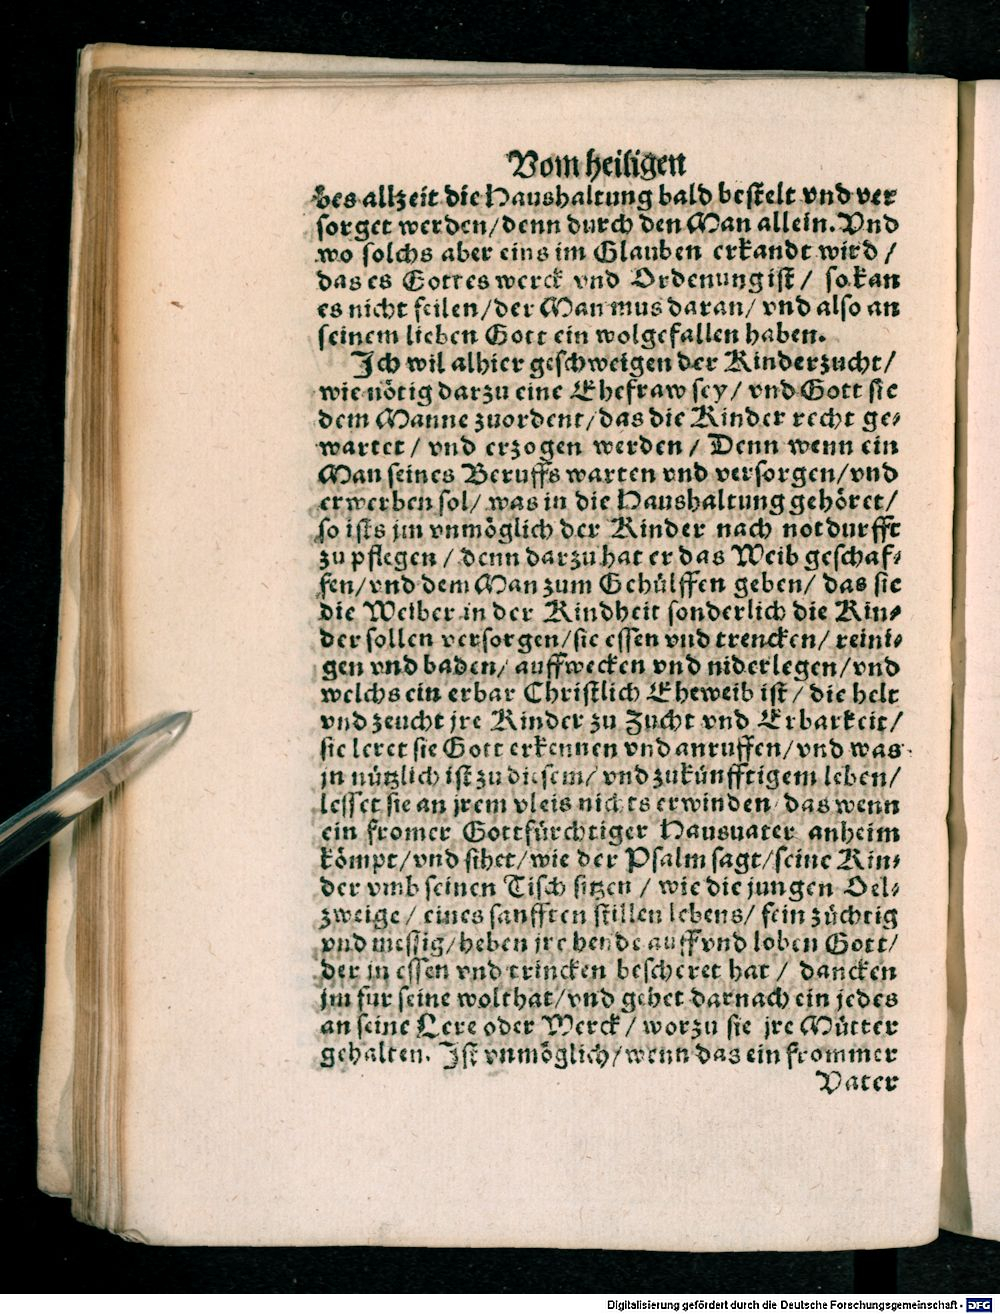 Vom heiligen
bes allzeit die Haushaltung bald bestelt vnd ver
sorget werden/denn durch den Man allein. Vnd
wo solchs aber eins im Glauben erkandt wird/
das es Gottes werck vnd Ordenung ist/ so kan
es nicht feilen/der Man mus daran/ vnd also an
seinem lieben Gott ein wolgefallen haben.
Ich wil alhier geschweigen der Kinderzucht/
wie nötig darzu eine Ehefraw sey/ vnd Gott sie
dem Manne zuordent/das die Kinder recht ge-
wartet/ vnd erzogen werden/ Denn wenn ein
Man seines Beruffs warten vnd versorgen/vnd
erwerben sol/ was in die Haushaltung gehöret/
so ists jm vnmöglich der Kinder nach notdurfft
zu pflegen/ denn darzu hat er das Weib geschaf-
fen/vnd dem Man zum Gehülffen geben/ das sie
die Weiber in der Kindheit sonderlich die Kin-
der sollen versorgen/sie essen vnd trencken/ reini-
gen vnd baden/ auffwecken vnd niderlegen/vnd
welchs ein erbar Christlich Eheweib ist/ die helt
vnd zeucht jre Kinder zu Zucht vnd Erbarkeit/
sie leret sie Gott erkennen vnd anruffen/vnd was
jn nützlich ist zu diesem/ vnd zukünfftigem leben/
lesset sie an jrem vleis nichts erwinden/ das wenn
ein fromer Gottfürchtiger Hausuater anheim
kömpt/vnd sihet/wie der Psalm sagt/seine Kin-
der vmb seinen Tisch sitzen/ wie die jungen Oel-
zweige/ eines sanfften stillen lebens/ fein züchtig
vnd messig/heben jre hende auff vnd loben Gott/
der jn essen vnd trincken bescheret hat/ dancken
jm fur seine wolthat/vnd gehet darnach ein jedes
an seine Lere oder Werck/ worzu sie jre Mütter
gehalten. Ist vnmöglich/wenn das ein frommer
Vater
Digitalisierung gefördert durch die Deutsche Forschungsgemeinschaft - DFG